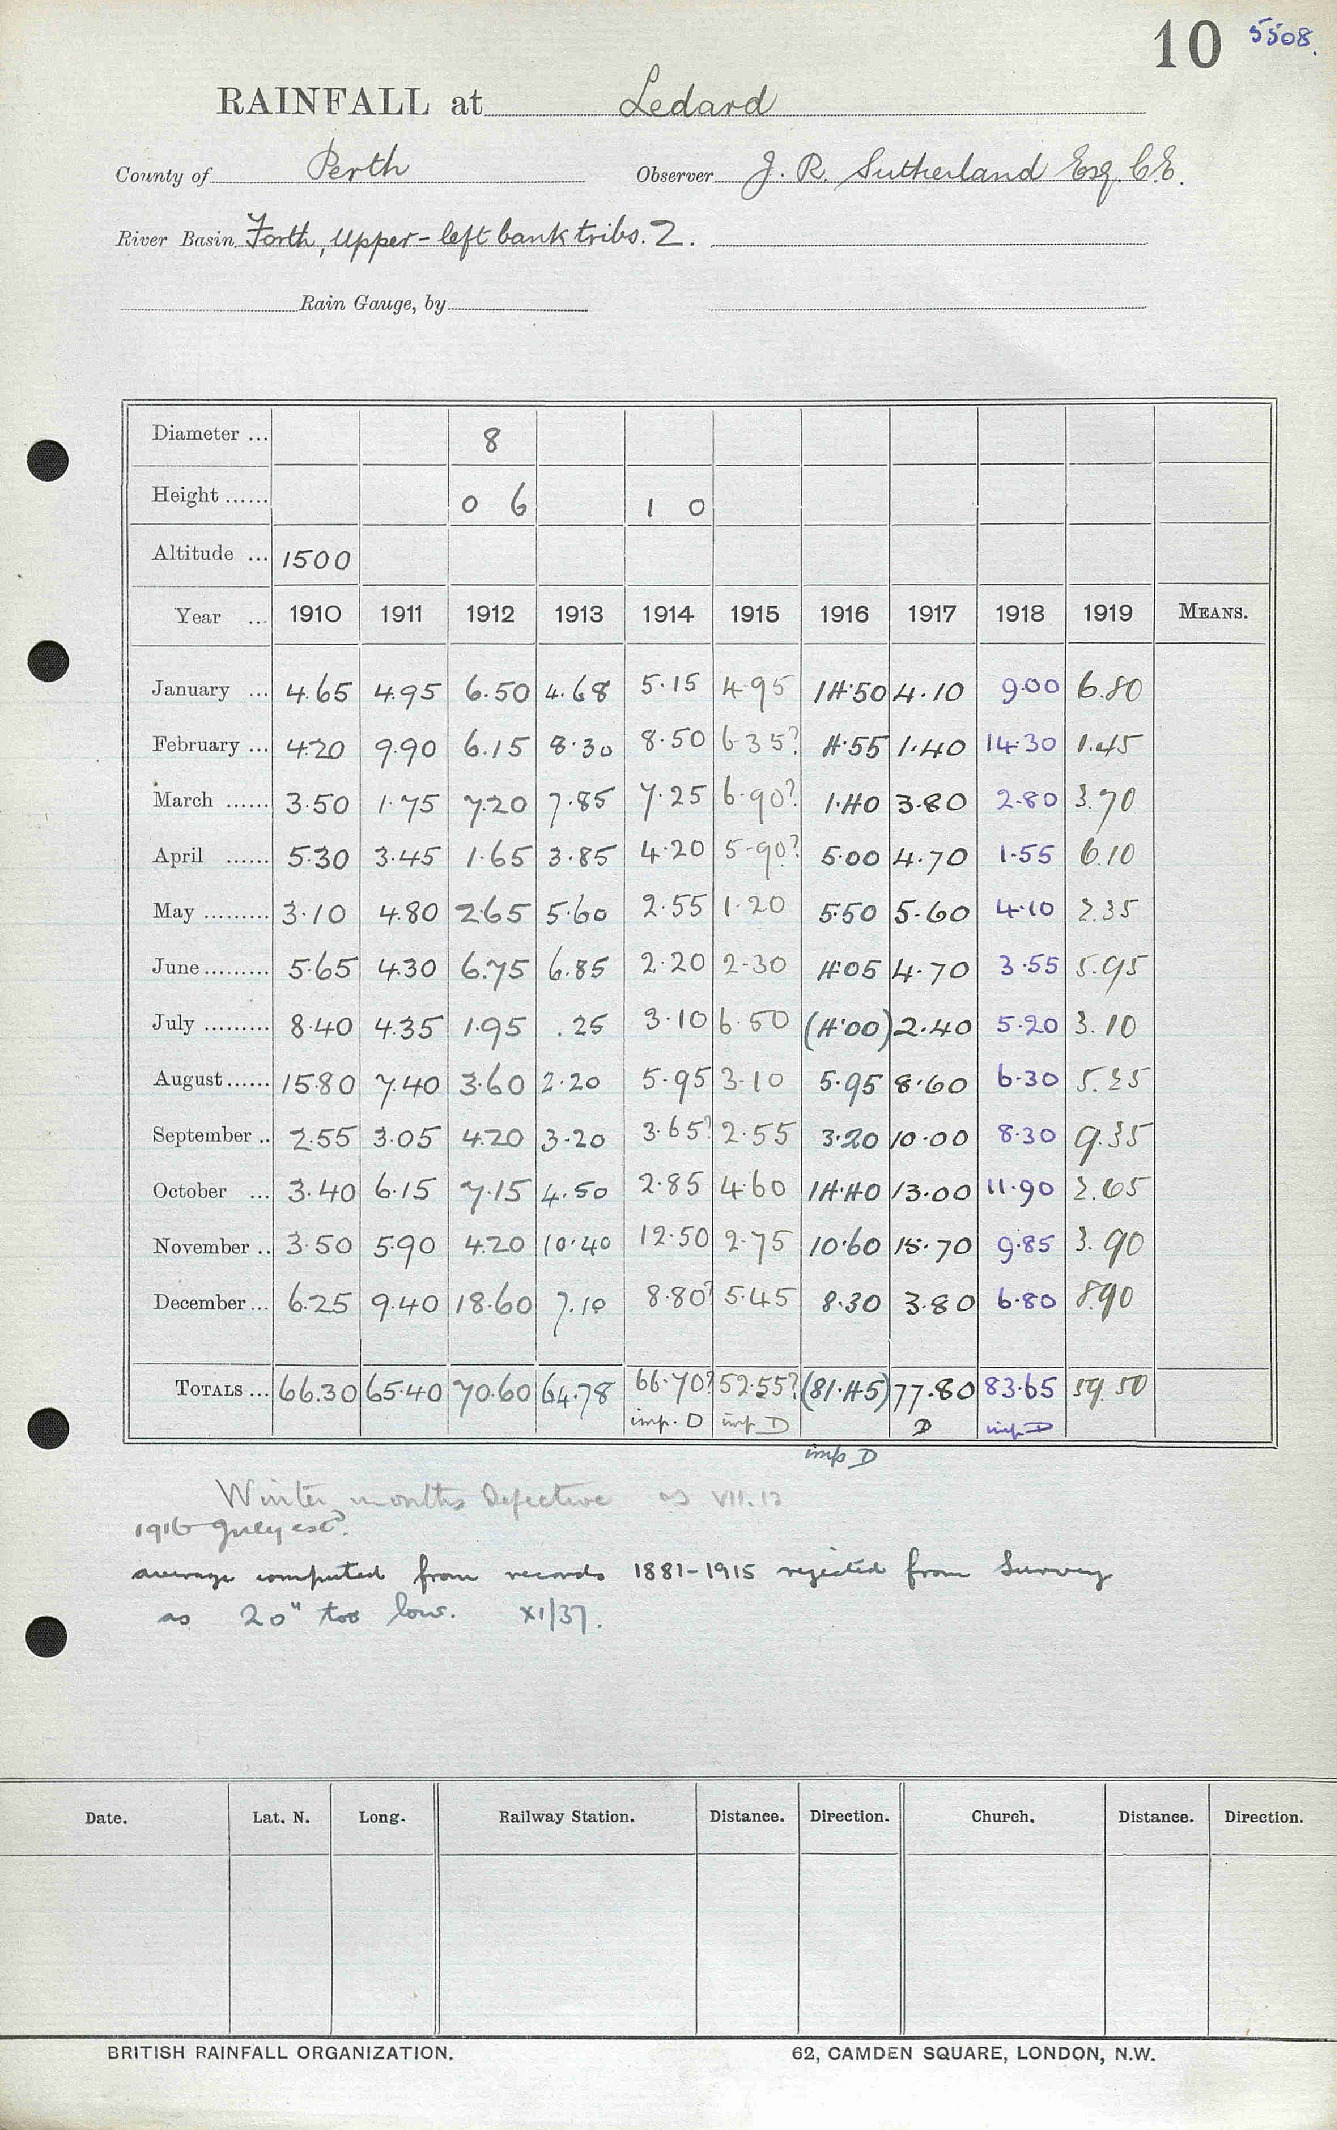 10 5508.
RAINFALL at Ledard
County of Perth Observer J. R. Sutherland Esq. C.E.
River Basin Forth, Upper - left bank tribs. 2.
Rain Gauge, by
Diameter ... 8
Height ...... 0 6 1 0
Altitude ... 1500
Year ... 1910 1911 1912 1913 1914 1915 1916 1917 1918 1919 MEANS.
January ... 4.65 4.95 6.50 4.68 5.15 4.95 14.50 4.10 9.00 6.80
February ... 4.20 9.90 6.15 8.30 8.50 6.35? 4.55 1.40 14.30 1.45
March ...... 3.50 1.75 7.20 7.85 7.25 6.90? 1.40 3.80 2.80 3.70
April ...... 5.30 3.45 1.65 3.85 4.20 5.90? 5.00 4.70 1.55 6.10
May ......... 3.10 4.80 2.65 5.60 2.55 1.20 5.50 5.60 4.10 2.35
June ......... 5.65 4.30 6.75 6.85 2.20 2.30 4.05 4.70 3.55 5.95
July ......... 8.40 4.35 1.95 .25 3.10 6.50 (4.00) 2.40 5.20 3.10
August ...... 15.80 7.40 3.60 2.20 5.95 3.10 5.95 8.60 6.30 5.25
September .. 2.55 3.05 4.20 3.20 3.65? 2.55 3.20 10.00 8.30 9.35
October ... 3.40 6.15 7.15 4.50 2.85 4.60 14.40 13.00 11.90 2.65
November .. 3.50 5.90 4.20 10.40 12.50 2.75 10.60 15.70 9.85 3.90
December ... 6.25 9.40 18.60 7.10 8.80? 5.45 8.30 3.80 6.80 8.90
TOTALS ... 66.30 65.40 70.60 64.78 66.70? 52.55? (81.45) 77.80 83.65 59.50
imp. D imp D D imp D
imp D
Winter months defective as VII.12
1916 July est.
average computed from records 1881-1915 rejected from Survey
as 20" too low. XI/37.
Date. Lat. N. Long. Railway Station. Distance. Direction. Church. Distance. Direction.
BRITISH RAINFALL ORGANIZATION. 62, CAMDEN SQUARE, LONDON, N.W.